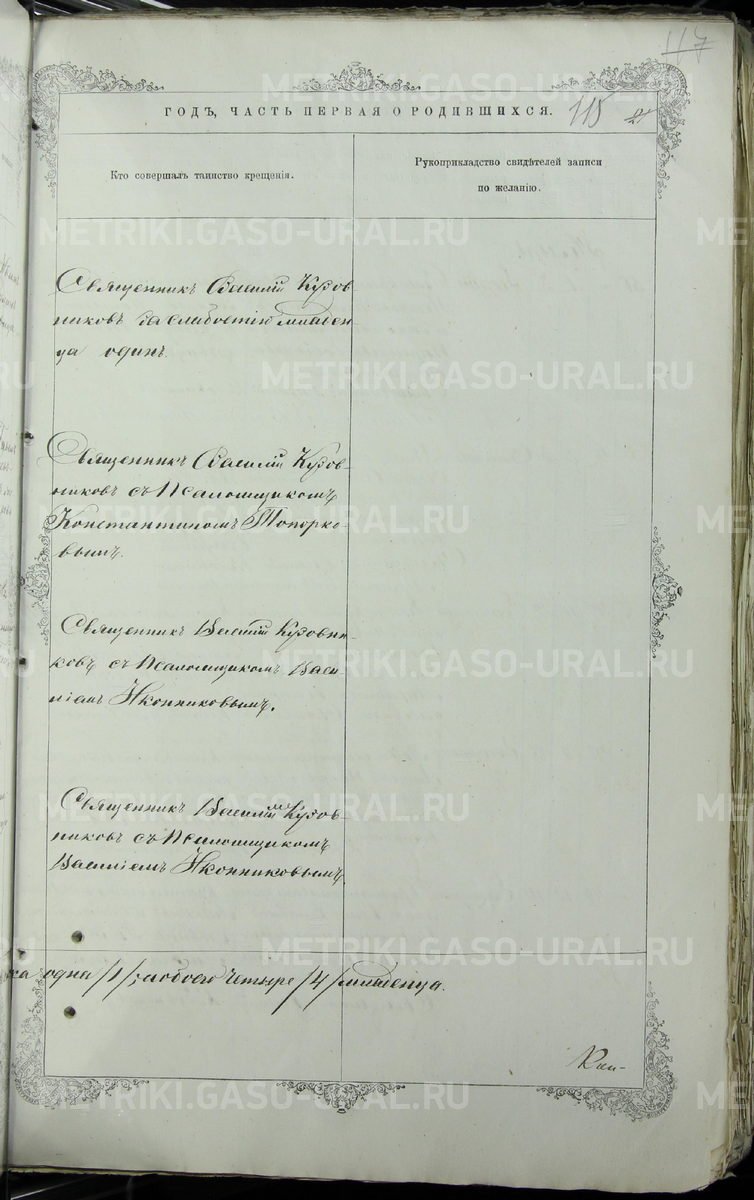 117
ГОДЪ, ЧАСТЬ ПЕРВАЯ О РОДИВШИХСЯ.
115
Кто совершалъ таинство крещенія.
Рукоприкладство свидѣтелей записи
по желанію.
Священникъ Василій Кузов
никовъ за слабостію младен
ца одинъ.
Священникъ Василій Кузов-
никовъ съ Псаломщикомъ
Константиномъ Топорко-
вымъ.
Священникъ Василій Кузовни-
ковъ съ Псаломщикомъ Васи-
ліемъ Иконниковымъ.
Священникъ Василій Кузов-
никовъ съ Псаломщикомъ
Василіемъ Иконниковымъ.
ка одна /1/, а обоего четыре /4/ младенца.
METRIKI.GASO-URAL.RU